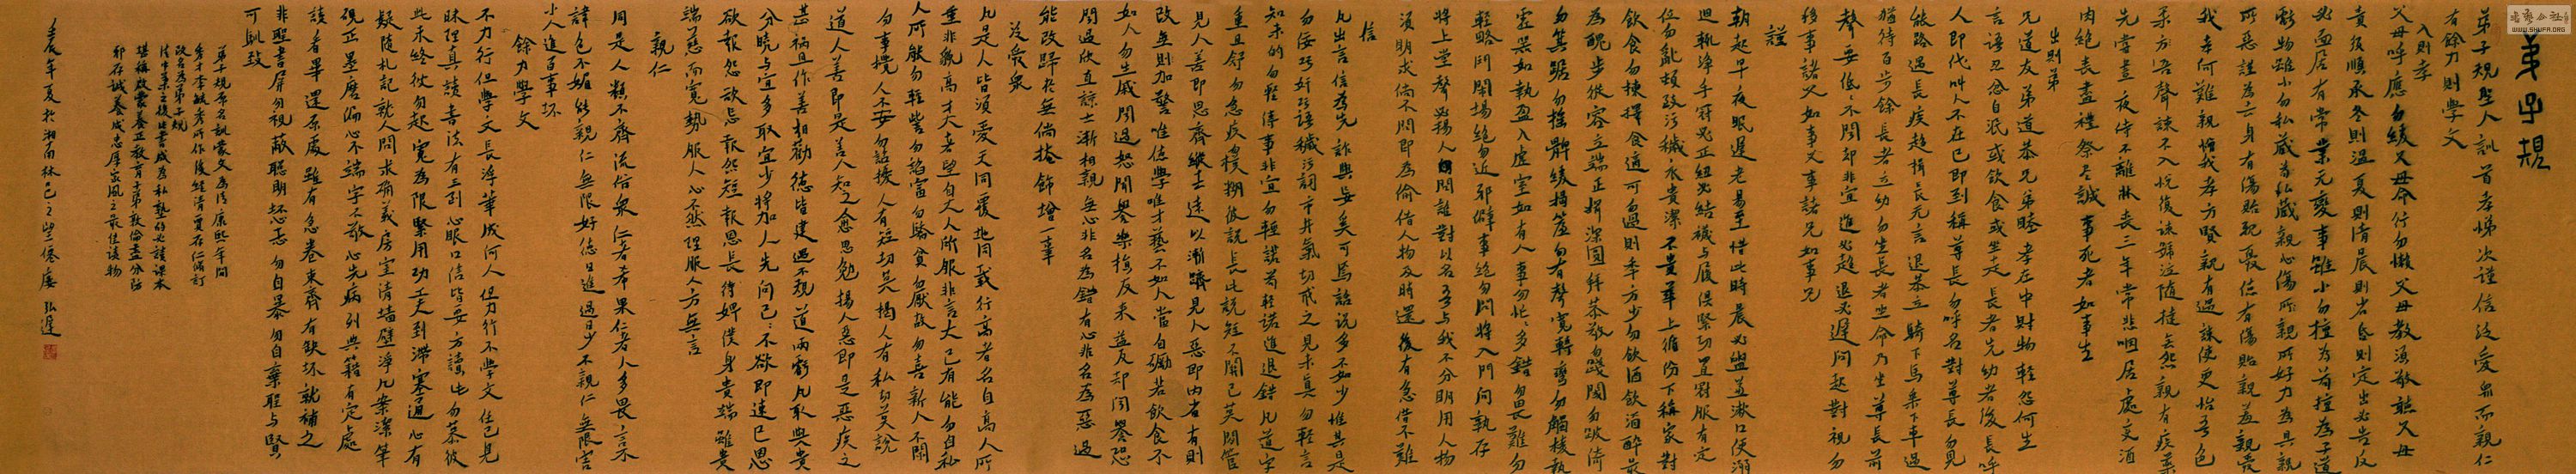 弟子規
弟子規聖人訓首孝悌次謹信泛愛眾而親仁
有餘力則學文
入則孝
父母呼應勿緩父母命行勿懶父母教須敬聽父母
責須順承冬則溫夏則凊晨則省昏則定出必告反
必面居有常業无變事雖小勿擅為苟擅為子道
虧物雖小勿私藏苟私藏親心傷所親所好力為具親
所惡謹為去身有傷貽親憂德有傷貽親羞親愛
我孝何難親憎我孝方賢親有過諫使更怡吾色
柔吾聲諫不入悅復諫號泣隨撻无怨親有疾藥
先嘗晝夜侍不離牀喪三年常悲咽居處變酒
肉絕喪盡禮祭盡誠事死者如事生
出則弟
兄道友弟道恭兄弟睦孝在中財物輕怨何生
言語忍忿自泯或飲食或坐走長者先幼者後長呼
人即代叫人不在己即到稱尊長勿呼名對尊長勿見
能路遇長疾趨揖長无言退恭立騎下馬乘下車過
猶待百步餘長者立幼勿坐長者坐命乃坐尊長前
聲要低低不聞却非宜進必趨退必遲問起對視勿
移事諸父如事父事諸兄如事兄
謹
朝起早夜眠遲老易至惜此時晨必盥兼漱口便溺
迴輒淨手冠必正紐必結襪與履俱緊切置冠服有定
位勿亂頓致污穢衣貴潔不貴華上循份下稱家對
飲食勿揀擇食適可勿過則年方少勿飲酒飲酒醉最
為醜步從容立端正揖深圓拜恭敬勿踐閾勿跛倚
勿箕踞勿搖髀緩揭簾勿有聲寬轉彎勿觸棱執
虛器如執盈入虛室如有人事勿忙忙多錯勿畏難勿
輕略鬥鬧場絕勿近邪僻事絕勿問將入門問孰存
將上堂聲必揚人問誰對以名吾與我不分明用人物
須明求倘不問即為偷借人物及時還後有急借不難
信
凡出言信為先詐與妄奚可焉話說多不如少惟其是
勿佞巧奸巧語穢污詞市井氣切戒之見未真勿輕言
知未的勿輕傳事非宜勿輕諾苟輕諾進退錯凡道字
重且舒勿急疾勿模糊彼說長此說短不關己莫閒管
見人善即思齊縱去遠以漸躋見人惡即內省有則
改無則加警唯德學唯才藝不如人當自礪若飲食不
如人勿生戚聞過怒聞譽樂損友來益友却聞譽恐
聞過欣直諒士漸相親無心非名為錯有心非名為惡過
能改歸於無倘掩飾增一辜
泛愛眾
凡是人皆須愛天同覆地同載行高者名自高人所
重非貌高才大者望自大人所服非言大己有能勿自私
人所能勿輕訾勿諂富勿驕貧勿厭故勿喜新人不閒
勿事攪人不安勿話擾人有短切莫揭人有私切莫說
道人善即是善人知之愈思勉揚人惡即是惡疾之
甚禍且作善相勸德皆建過不規道兩虧凡取與貴
分曉與宜多取宜少將加人先問己己不欲即速已恩
欲報怨欲忘報怨短報恩長待婢僕身貴端雖貴
端慈而寬勢服人心不然理服人方無言
親仁
同是人類不齊流俗眾仁者希果仁者人多畏言不
諱色不媚能親仁無限好德日進過日少不親仁無限害
小人進百事坏
餘力學文
不力行但學文長浮華成何人但力行不學文任己見
昧理真讀書法有三到心眼口信皆要方讀此勿慕彼
此未終彼勿起寬為限緊用功工夫到滯塞通心有
疑隨札記就人問求确義房室清墻壁淨几案潔筆
硯正墨磨偏心不端字不敬心先病列典籍有定處
讀看畢還原處雖有急卷束齊有缺坏就補之
非聖書屏勿視蔽聰明坏心志勿自暴勿自棄聖與賢
可馴致
弟子規原名訓蒙文為清康熙年間
秀才李毓秀所作後經清賈存仁修訂
改名為弟子規